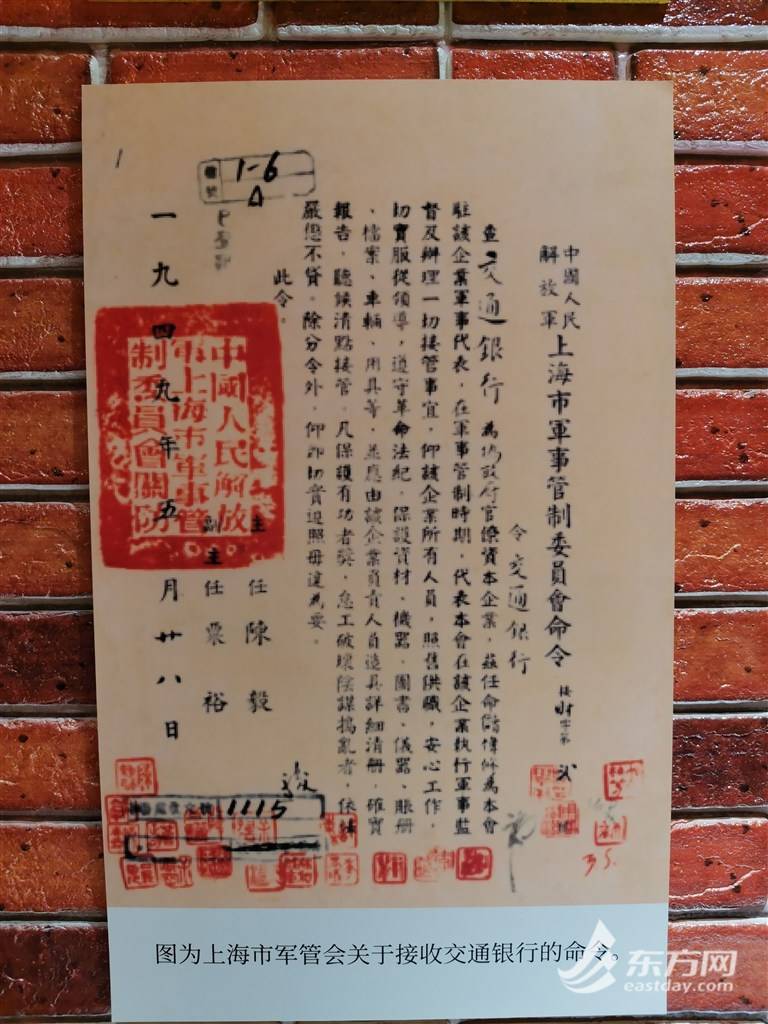 中國人民
解放軍
上海市軍事管制委員會命令
令交通銀行
查交通銀行為偽政府官僚資本企業，茲任命儲偉修為本會
駐該企業軍事代表，在軍事管制時期，代表本會在該企業執行軍事監
督及辦理一切接管事宜，仰該企業所有人員，照舊供職，安心工作，
切實服從領導，遵守革命法紀，保護資材、機器、圖書、儀器、賬冊
、檔案、車輛、用具等，並應由該企業負責人員造具詳細清冊，確實
報告，聽候清點接管，凡保護有功者獎，怠工破壞陰謀搗亂者，依法
嚴懲不貸。除分令外，仰即切實遵照毋違為要。
此令。
主任陳毅
副主任粟裕
一九四九年五月廿八日
中國人民解放
軍上海市軍事管
制委員會關防
1-6
A
1115
35.
图为上海市军管会关于接收交通银行的命令。
东方网
eastday.com